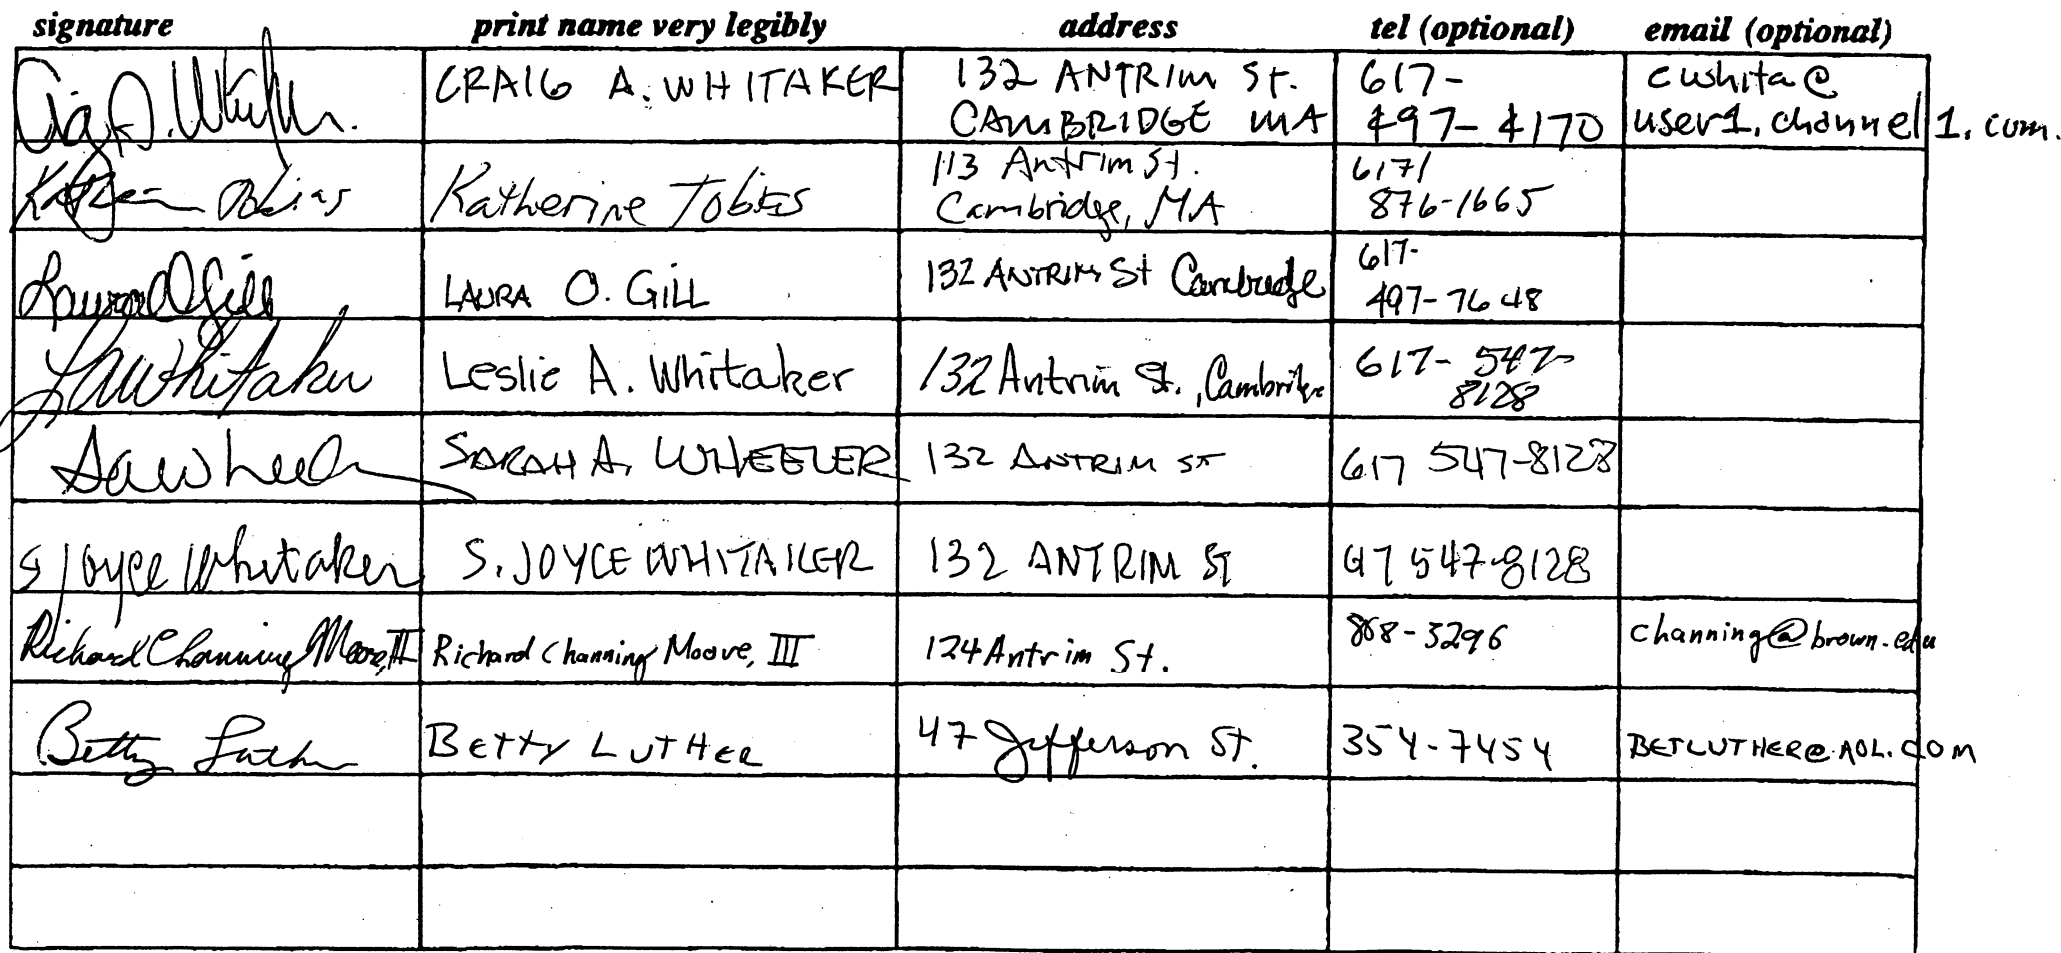 signature print name very legibly address tel (optional) email (optional)
Craig A. Whitaker. CRAIG A. WHITAKER 132 ANTRIM St. 617- cwhita@
CAMBRIDGE MA 497-4170 user1.channel1.com.
Katherine Tobias Katherine Tobias 113 Antrim St. 617/
Cambridge, MA 876-1665
Laura O Gill LAURA O. GILL 132 ANTRIM St Cambridge 617-
497-7648
LAWhitaker Leslie A. Whitaker 132 Antrim St., Cambridge 617-547-
8128
SAWheeler SARAH A. WHEELER 132 ANTRIM ST 617 547-8128
S Joyce Whitaker S. JOYCE WHITAKER 132 ANTRIM St 617 547-8128
Richard Channing Moore, III Richard Channing Moore, III 124 Antrim St. 868-3296 channing@brown.edu
Betty Luther BETTY LUTHER 47 Jefferson St. 354-7454 BETLUTHER@AOL.COM